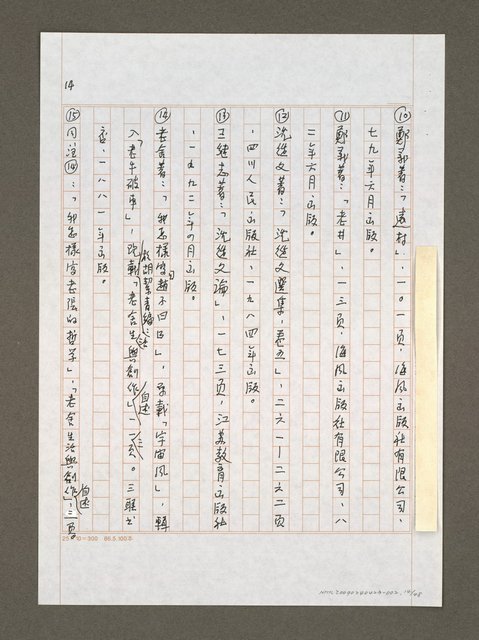 14
⑩鄭義著:「遠村」,一〇一頁,海風出版社有限公司、
七九年六月出版。
⑪鄭義著:「老井」,一三頁,海風出版社有限公司,八
二年六月出版。
⑫沈從文著:「沈從文選集,卷五」,二六一—二六二頁
,四川人民出版社,一九八四年出版。
⑬王繼志著:「沈從文論」,一七三頁,江蘇教育出版社
,一九九二年 月出版。
⑭老舍著:「我怎樣寫趙子曰」,原載「宇宙風」,轉
入「老牛破車」,現載於胡絜青編:「老舍生活與創作自述」,一一頁。三聯書
店,一八八一年出版。
⑮同注⑭:「我怎樣寫老張的哲學」,「老舍生活與創作自述」,三頁。
25 300 86.5.100本
NMTL20090280026-002